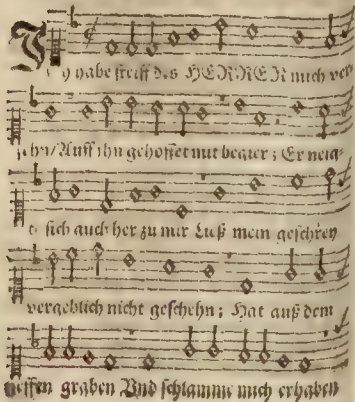 Ich habe steiff des HERREN mich ver-
sehn/ Auff ihn gehoffet mit begier; Er neig-
te sich auch her zu mir Ließ mein geschrey
vergeblich nicht geschehn; Hat auß dem
tieffen graben Vnd schlamme mich erhaben